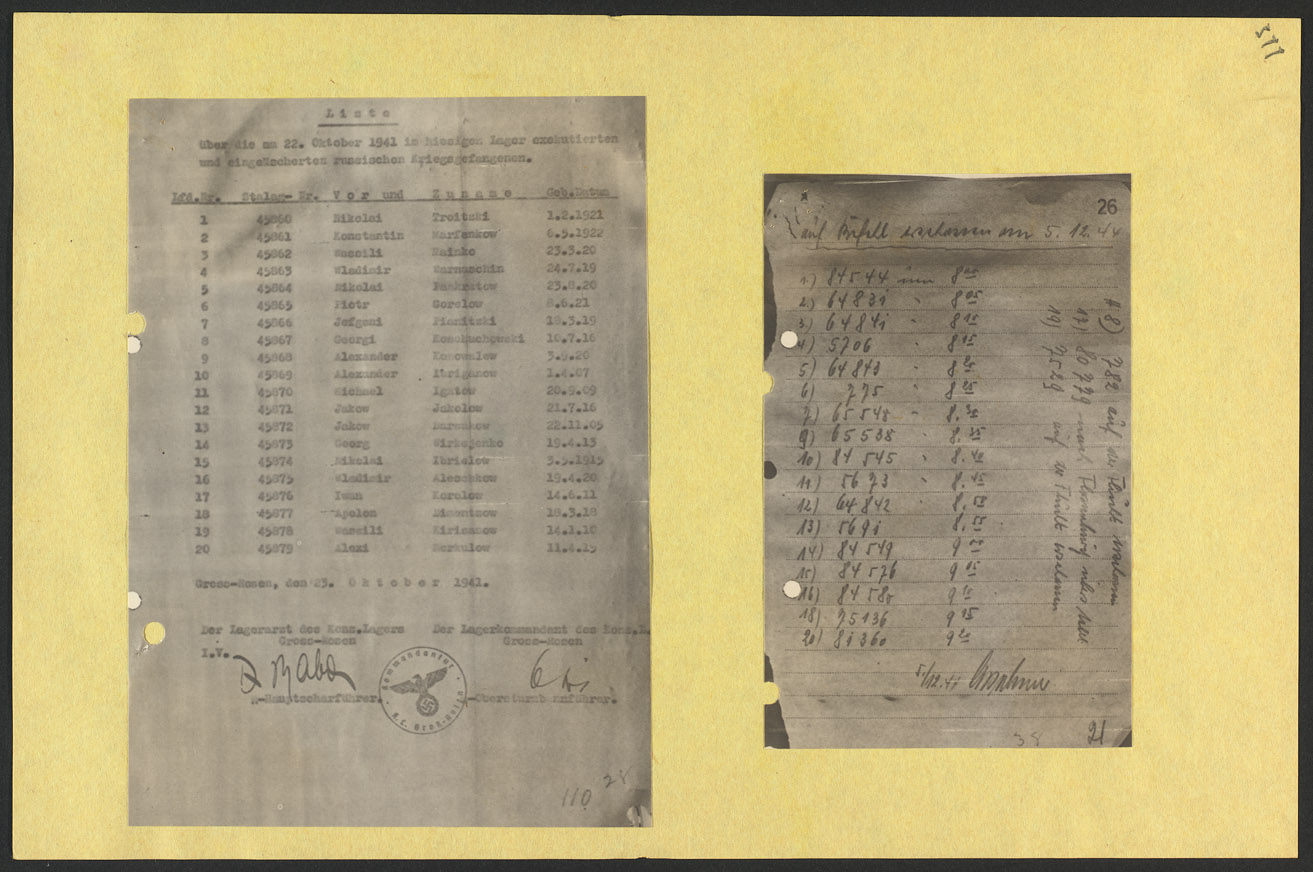 577
Liste
über die am 22. Oktober 1941 im hiesigen Lager exekutierten
und eingeäscherten russischen Kriegsgefangenen.
Lfd.Nr. Stalag- Nr. Vor und Zuname Geb.Datum
1 45860 Nikolai Troitzki 1.2.1921
2 45861 Konstantin Marfenkow 6.5.1922
3 45862 Wassili Hainko 23.3.20
4 45863 Wladimir Warnaschin 24.7.19
5 45864 Nikolai Pankratow 23.8.20
6 45865 Piotr Gorelow 8.6.21
7 45866 Jefgeni Pianitzki 18.3.19
8 45867 Georgi 10.7.16
9 45868 Alexander Konowalow 3.9.20
10 45869 Alexander Ibriganow 1.4.07
11 45870 Michael Igatow 20.9.09
12 45871 Jakow Jakolow 21.7.16
13 45872 Jakow 22.11.05
14 45873 Georg 19.4.13
15 45874 Nikolai Ibrielow 3.5.1915
16 45875 Wladimir Aleschkow 19.4.20
17 45876 Iwan Korolow 14.6.11
18 45877 Apolon Dimentzow 18.3.18
19 45878 Wassili Kirisanow 14.1.10
20 45879 Alexi Merkulow 11.4.15
Gross-Rosen, den 23. Oktober 1941.
Der Lagerarzt des Konz.Lagers Der Lagerkommandant des Konz.L.
Gross-Rosen Gross-Rosen
I.V.
Kommandantur
K.L. Groß-Rosen
-Hauptscharführer. -Obersturmbannführer.
110 28
26
auf Befehl erschossen am 5.12.44
1) 84544 um 8 05
2) 64831 " 8 05
3) 64841 " 8 15
4) 5706 " 8 15
5) 64843 " 8
6) 775 " 8 25
7) 65548 " 8. 30
9) 65538 " 8. 35
10) 84545 " 8. 40
11) 5673 " 8. 45
12) 64842 " 8. 50
13) 5691 8. 55
14) 84549 9 00
15) 84576 9 05
16) 8458 9 10
18) 75136 9 15
20) 81360 9 20
# 8) 782 auf der Flucht erschossen
17) 80779 nach
19) 7529 auf der Flucht erschossen
5/12.44
38 21